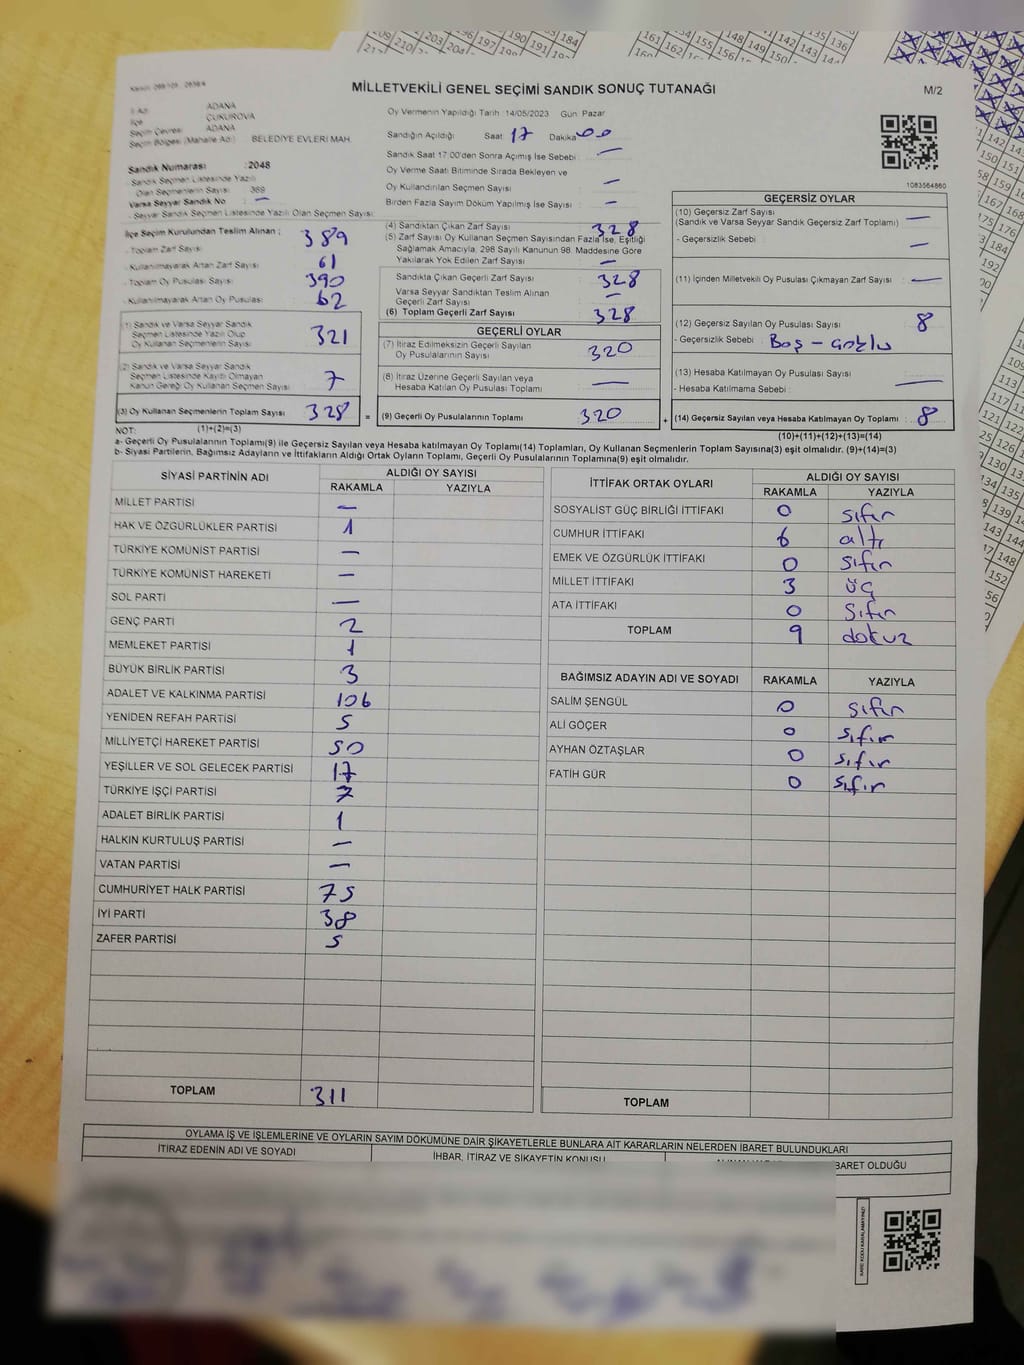 MİLLETVEKİLİ GENEL SEÇİMİ SANDIK SONUÇ TUTANAĞI
M/2
İl Adı ADANA
İlçe ÇUKUROVA
Seçim Çevresi ADANA
Seçim Bölgesi (Mahalle Adı) BELEDİYE EVLERİ MAH.
Sandık Numarası :2048
Sandık Seçmen Listesinde Yazılı
Olan Seçmenlerin Sayısı 369
Varsa Seyyar Sandık No —
- Seyyar Sandık Seçmen Listesinde Yazılı Olan Seçmen Sayısı:
İlçe Seçim Kurulundan Teslim Alınan ;
- Toplam Zarf Sayısı 389
- Kullanılmayarak Artan Zarf Sayısı 61
- Toplam Oy Pusulası Sayısı 390
- Kullanılmayarak Artan Oy Pusulası 62
(1) Sandık ve Varsa Seyyar Sandık
Seçmen Listesinde Yazılı Olup
Oy Kullanan Seçmenlerin Sayısı 321
(2) Sandık ve Varsa Seyyar Sandık
Seçmen Listesinde Kayıtlı Olmayan
Kanun Gereği Oy Kullanan Seçmen Sayısı 7
(3) Oy Kullanan Seçmenlerin Toplam Sayısı 328
Oy Vermenin Yapıldığı Tarih :14/05/2023 Gün Pazar
Sandığın Açıldığı Saat 17 Dakika 00
Sandık Saat 17:00'den Sonra Açılmış İse Sebebi : —
Oy Verme Saati Bitiminde Sırada Bekleyen ve
Oy Kullandırılan Seçmen Sayısı : —
Birden Fazla Sayım Döküm Yapılmış İse Sayısı : —
(4) Sandıktan Çıkan Zarf Sayısı : 328
(5) Zarf Sayısı Oy Kullanan Seçmen Sayısından Fazla İse, Eşitliği
Sağlamak Amacıyla, 298 Sayılı Kanunun 98. Maddesine Göre
Yakılarak Yok Edilen Zarf Sayısı : —
Sandıkta Çıkan Geçerli Zarf Sayısı : 328
Varsa Seyyar Sandıktan Teslim Alınan
Geçerli Zarf Sayısı : —
(6) Toplam Geçerli Zarf Sayısı : 328
GEÇERLİ OYLAR
(7) İtiraz Edilmeksizin Geçerli Sayılan
Oy Pusulalarının Sayısı : 320
(8) İtiraz Üzerine Geçerli Sayılan veya
Hesaba Katılan Oy Pusulası Toplamı : —
= (9) Geçerli Oy Pusulalarının Toplamı 320
1083564860
GEÇERSİZ OYLAR
(10) Geçersiz Zarf Sayısı
(Sandık ve Varsa Seyyar Sandık Geçersiz Zarf Toplamı) : —
- Geçersizlik Sebebi : —
(11) İçinden Milletvekili Oy Pusulası Çıkmayan Zarf Sayısı : —
(12) Geçersiz Sayılan Oy Pusulası Sayısı : 8
- Geçersizlik Sebebi : Boş -
(13) Hesaba Katılmayan Oy Pusulası Sayısı : —
- Hesaba Katılmama Sebebi :
+ (14) Geçersiz Sayılan veya Hesaba Katılmayan Oy Toplamı : 8
NOT: (1)+(2)=(3) (10)+(11)+(12)+(13)=(14)
a- Geçerli Oy Pusulalarının Toplamı(9) ile Geçersiz Sayılan veya Hesaba katılmayan Oy Toplamı(14) Toplamları, Oy Kullanan Seçmenlerin Toplam Sayısına(3) eşit olmalıdır. (9)+(14)=(3)
b- Siyasi Partilerin, Bağımsız Adayların ve İttifakların Aldığı Ortak Oyların Toplamı, Geçerli Oy Pusulalarının Toplamına(9) eşit olmalıdır.
SİYASİ PARTİNİN ADI ALDIĞI OY SAYISI
RAKAMLA YAZIYLA
MİLLET PARTİSİ —
HAK VE ÖZGÜRLÜKLER PARTİSİ 1
TÜRKİYE KOMÜNİST PARTİSİ —
TÜRKİYE KOMÜNİST HAREKETİ —
SOL PARTİ —
GENÇ PARTİ 2
MEMLEKET PARTİSİ 1
BÜYÜK BİRLİK PARTİSİ 3
ADALET VE KALKINMA PARTİSİ 106
YENİDEN REFAH PARTİSİ 5
MİLLİYETÇİ HAREKET PARTİSİ 50
YEŞİLLER VE SOL GELECEK PARTİSİ 17
TÜRKİYE İŞÇİ PARTİSİ 7
ADALET BİRLİK PARTİSİ 1
HALKIN KURTULUŞ PARTİSİ —
VATAN PARTİSİ —
CUMHURİYET HALK PARTİSİ 75
İYİ PARTİ 38
ZAFER PARTİSİ 5
TOPLAM 311
İTTİFAK ORTAK OYLARI ALDIĞI OY SAYISI
RAKAMLA YAZIYLA
SOSYALİST GÜÇ BİRLİĞİ İTTİFAKI 0 sıfır
CUMHUR İTTİFAKI 6 altı
EMEK VE ÖZGÜRLÜK İTTİFAKI 0 sıfır
MİLLET İTTİFAKI 3 üç
ATA İTTİFAKI 0 sıfır
TOPLAM 9 dokuz
BAĞIMSIZ ADAYIN ADI VE SOYADI RAKAMLA YAZIYLA
SALİM ŞENGÜL 0 sıfır
ALİ GÖÇER 0 sıfır
AYHAN ÖZTAŞLAR 0 sıfır
FATİH GÜR 0 sıfır
TOPLAM
OYLAMA İŞ VE İŞLEMLERİNE VE OYLARIN SAYIM DÖKÜMÜNE DAİR ŞİKAYETLERLE BUNLARA AİT KARARLARIN NELERDEN İBARET BULUNDUKLARI
İTİRAZ EDENİN ADI VE SOYADI İHBAR, İTİRAZ VE ŞİKAYETİN KONUSU BARET OLDUĞU